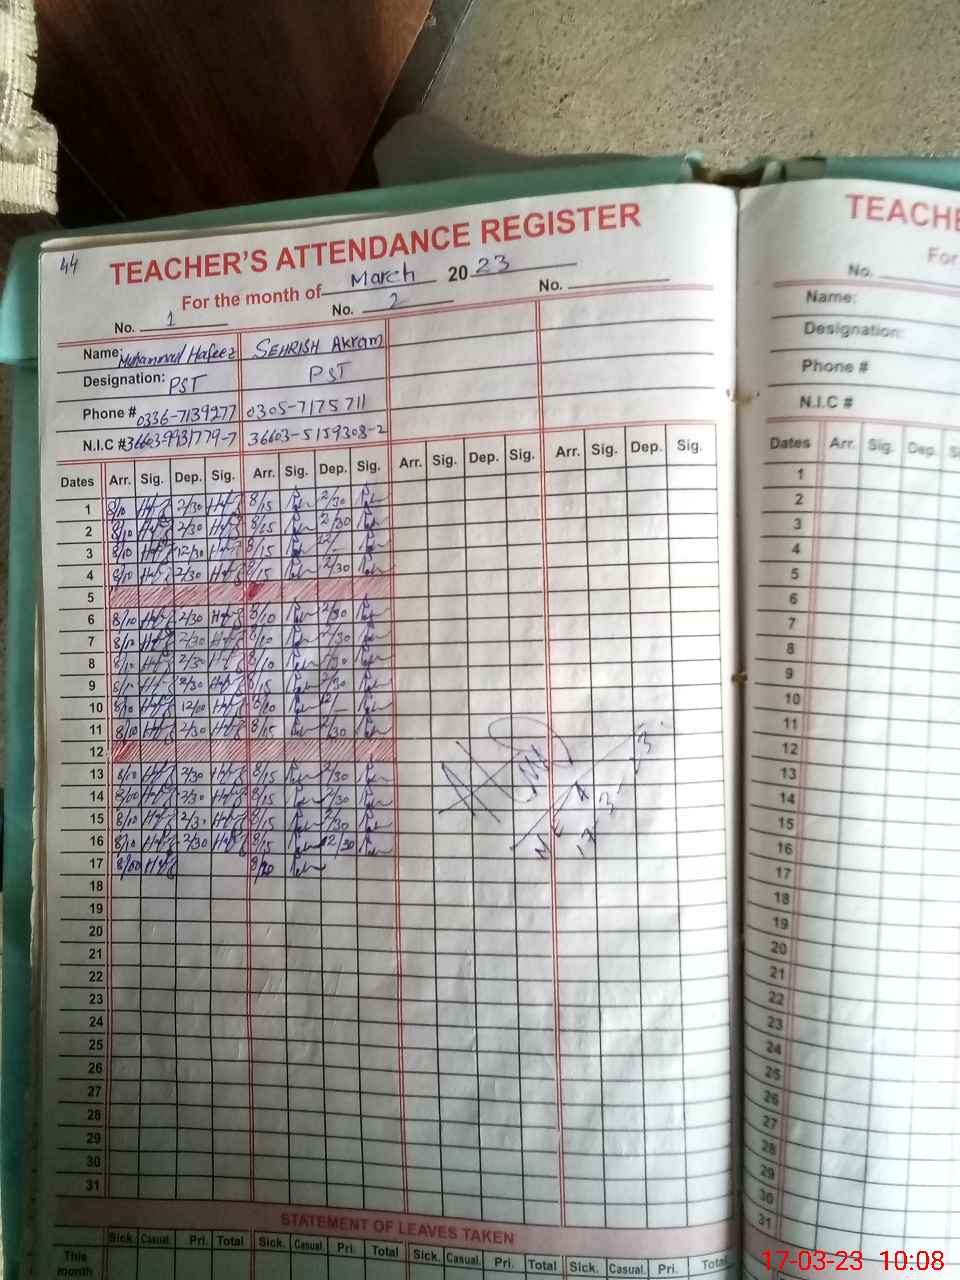 44
TEACHER'S ATTENDANCE REGISTER
For the month of March 2023
No. 1 No. 2 No.
Name: Muhammad Hafeez SEHRISH Akram
Designation: PST PST
Phone # 0336-7139277 0305-7175711
N.I.C # 36603-9931779-7 36603-5159308-2
Dates Arr. Sig. Dep. Sig. Arr. Sig. Dep. Sig. Arr. Sig. Dep. Sig. Arr. Sig. Dep. Sig.
1 8/10 2/30 8/15 2/30
2 8/10 2/30 8/15 2/30
3 8/10 12/30 8/15 12/-
4 8/10 2/30 8/15 2/30
5
6 8/10 2/30 8/10 2/30
7 8/10 2/30 8/10 2/30
8 8/10 2/30 8/10 2/30
9 8/10 2/30 8/15 2/30
10 8/10 12/00 8/10 12/-
11 8/10 2/30 8/15 2/30
12
13 8/10 2/30 8/15 2/30
14 8/00 2/30 8/15 2/30
15 8/10 2/30 8/15 2/30
16 8/10 2/30 8/15 2/30
17 8/00
18
19
20
21
22
23
24
25
26
27
28
29
30
31
STATEMENT OF LEAVES TAKEN
Sick. Casual. Pri. Total Sick. Casual. Pri. Total Sick. Casual. Pri. Total Sick. Casual. Pri. Total
This
month
TEACHE
For
No.
Name:
Designation:
Phone #
N.I.C #
Dates Arr. Sig. Dep.
1
2
3
4
5
6
7
8
9
10
11
12
13
14
15
16
17
18
19
20
21
22
23
24
25
26
27
28
29
30
31
17-03-23 10:08